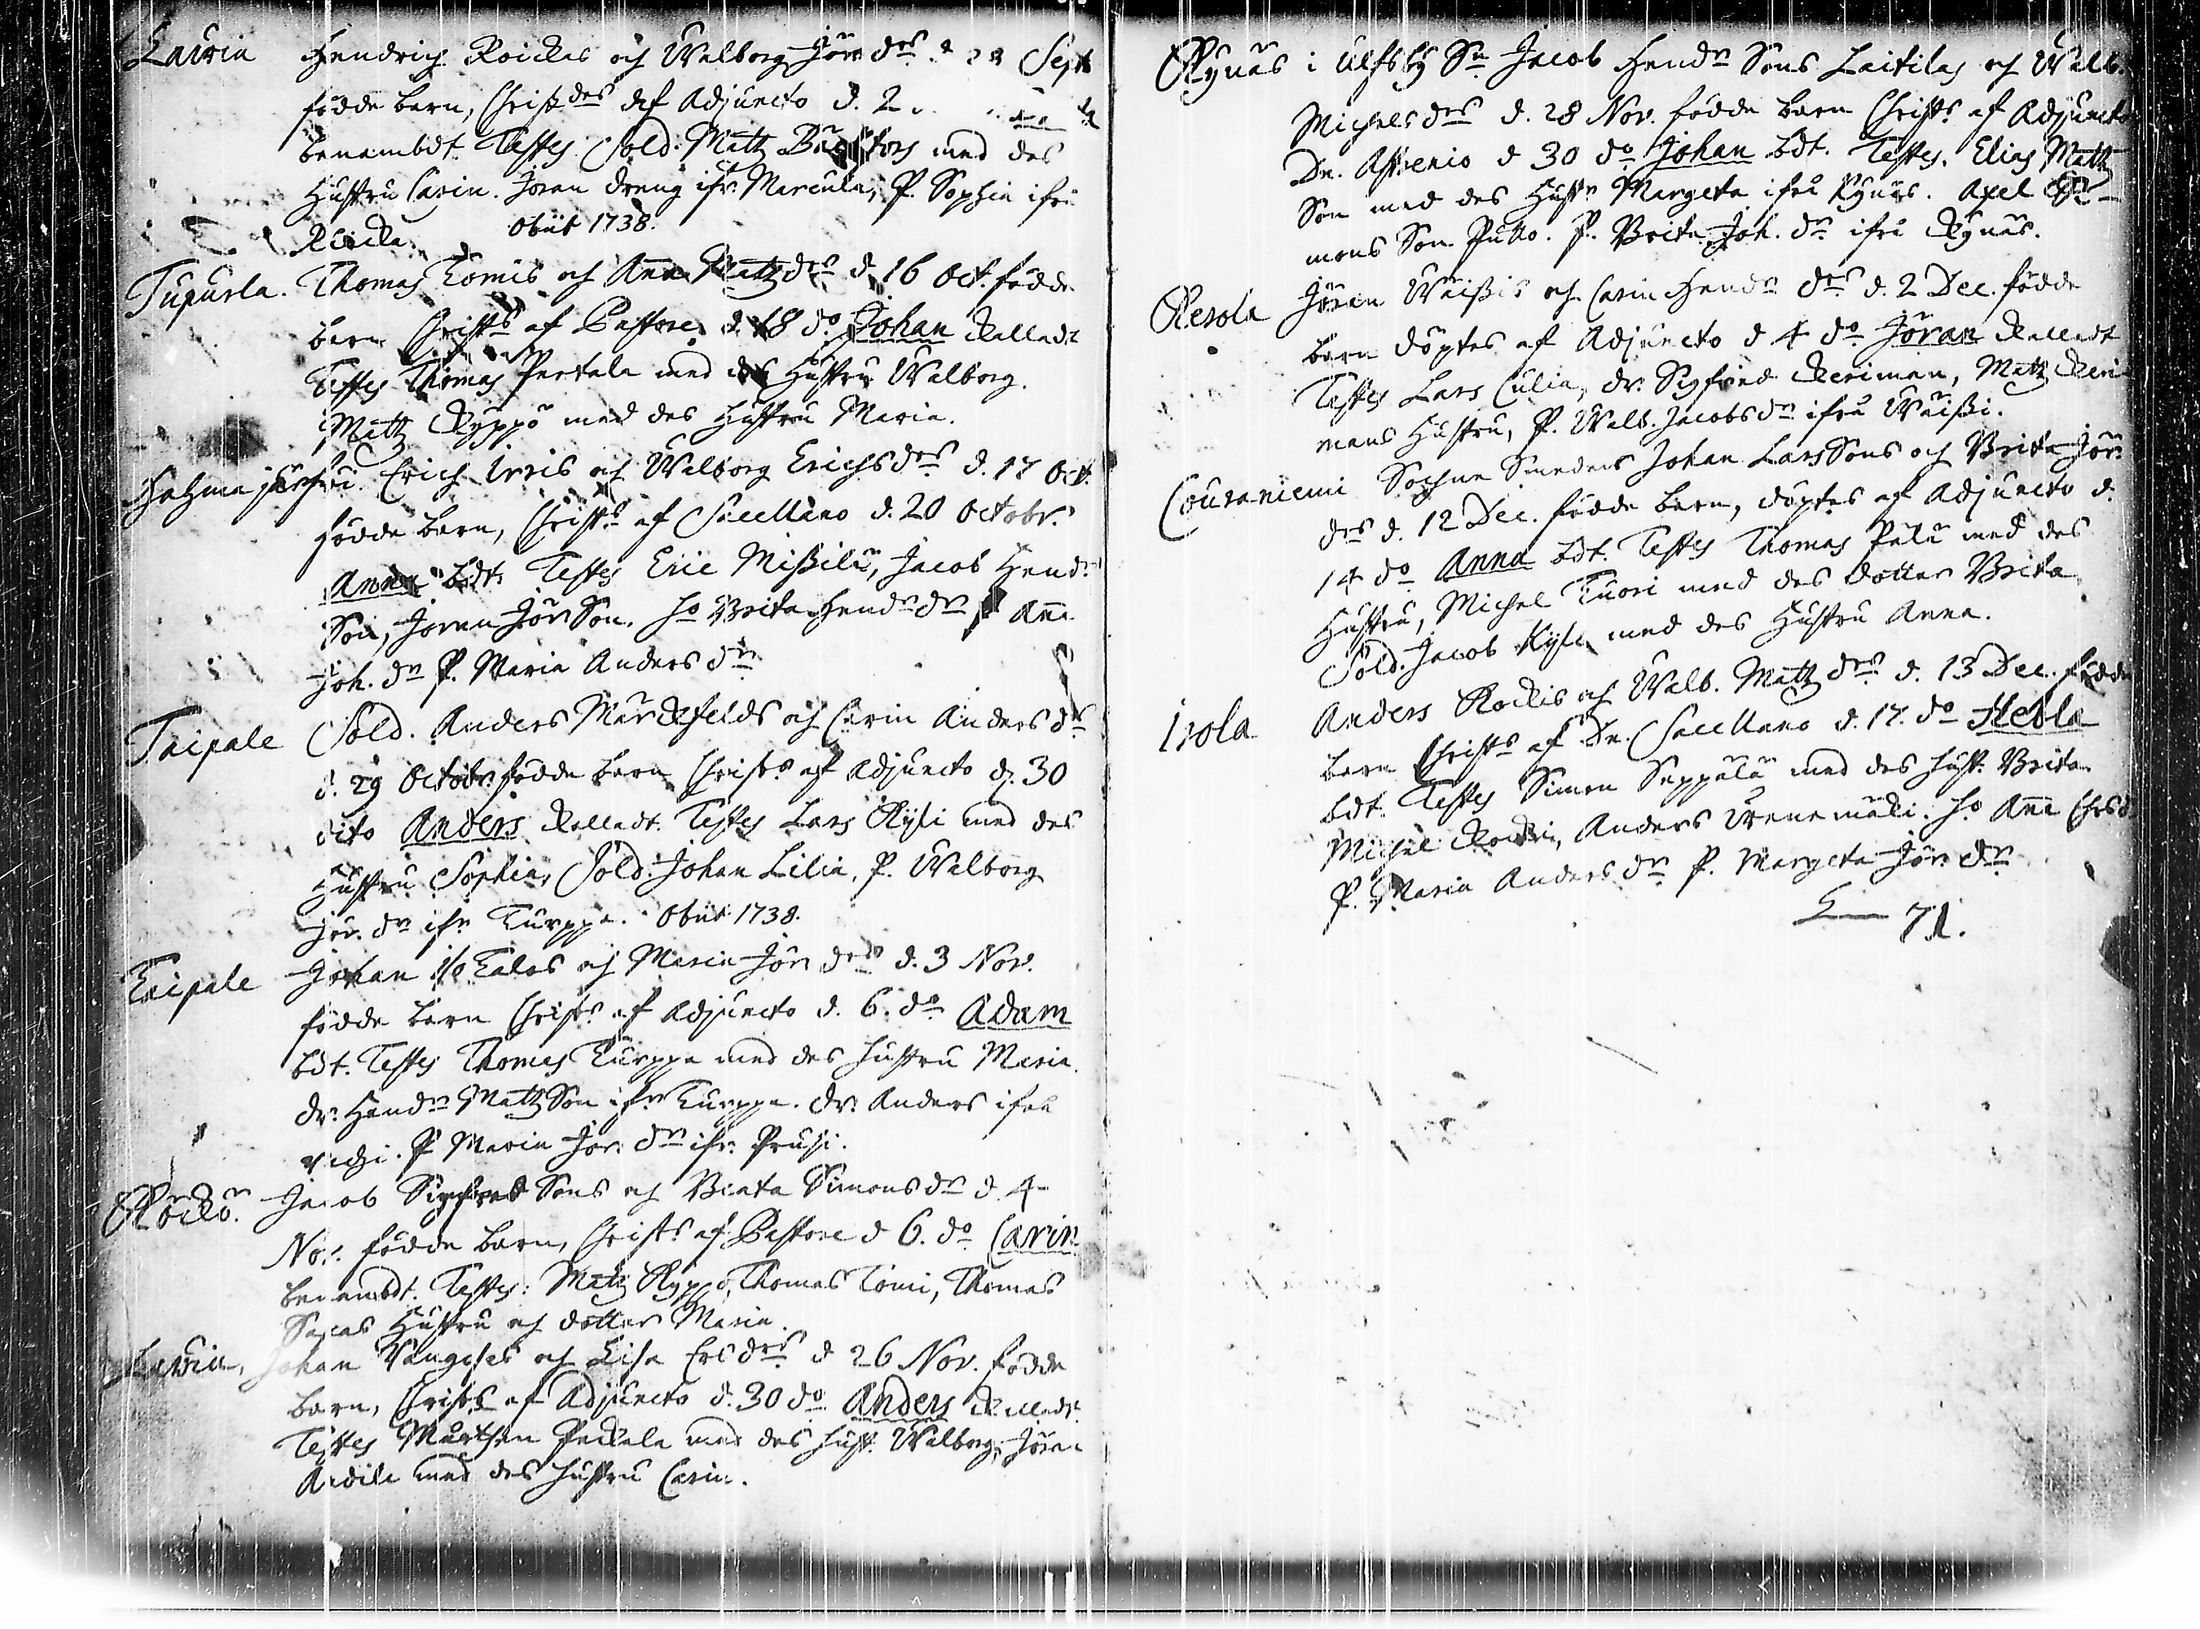 Lauria Hendrich Roickas och Walborg Jör. drs d. Sept
födde barn, Christdes af Adjuncto d. 2
benembdt. Testes Sold. Matz med des
Hustru Carin. Jöran dreng ifr. Marcula, P. Sophia ifrå
Roicka. obiit 1738.
Tupurla. Thomas Tomis och Anna Matzdrs d. 16 Oct. födde
barn Christs af Pastore d. 18 do Johan kalladt
Testes Thomas Pertala med des Hustru Walborg.
Matz Ryppö med des Hustru Maria.
Hahmajärfvi. Erich Irris och Walborg Erichsdrs d. 17 Oct.
födde barn, Christs af Sacellano d. 20 Octobr.
Anna bdt. Testes Eric Missilä, Jacob Hendr
Son, Jöran Jör Son. Ho Brita Hendr dr Ana
Joh. dr P. Maria Anders dr
Taipale Sold. Anders Markfelds och Carin Anders drs
d. 29 Octobr. födde barn Christs af Adjuncto d. 30
dito Anders kalladt. Testes Lars Kysi med des
Hustru Sophia, Sold. Johan Lilia, P. Walborg
Jör. dr ifr Kurppa. Obiit 1738.
Taipale Johan Talas och Maria Jör drs d. 3 Nov.
födde barn Christs af Adjuncto d. 6. do Adam
bdt. Testes Thomas Kurppa med des hustru Maria.
dr. Hendr Matz Son ifr Kurppa. dr. Anders ifrå
P Maria Jör. dr ifr. Prusi.
Röckö. Jacob Sigfred Sons och Beata Simons dr d. 4
Nov. födde barn, Christs af Pastore d 6. do Carin
benembdt. Testes: Matz Ryppö, Thomas Tomi, Thomas
Hustru och dotter Maria.
Lauria, Johan Vangeses och Lisa Ersdrs d 26 Nov. födde
barn, Christs af Adjuncto d. 30 do Anders kalladt.
Testes Mårthen Peckala med des hust. Walborg, Jöran
med des hustru Carin.
Rynäs i Ulfsby Sn Jacob Hendr Sons Laitilas och Walb.
Michelsdrs d. 28 Nov. födde barn Christs af Adjuncto
Dn. d 30 do Johan bdt. Testes. Elias Matz
Son med des Hustr Margeta ifrå Rynäs. Axel Si-
mons Son Putto. P. Brita Joh. dr ifrå Rynäs.
Kerola Jöran Wäissis och Carin Hendr drs d. 2 Dec. födde
barn döptes af Adjuncto d 4 do Jöran kalladt
Testes Lars Culia, dr. Sigfred Keriman, Matz Keri
mans Hustru, P. Walb. Jacobs dr ifrå Wäissi.
Couraniemi Sochne Smedens Johan Lars Sons och Brita Jör.
drs d. 12 Dec. födde barn, döptes af Adjuncto d.
14 do Anna bdt. Testes Thomas Pälä med des
Hustru, Michel Tuori med des dotter Brita
Sold. Jacob Kysi med des Hustru Anna.
Irola Anders Rockis och Walb. Matz drs d. 13 Dec. födde
barn Christs af Dn. Sacellano d. 17. do Hebla
bdt. Testes Simon Seppälä med des hust. Brita
Michel Rocki, Anders Wenemäki. Ho Ana Chrs d
P. Maria Anders dr P. Margeta Jör. dr
S 71.